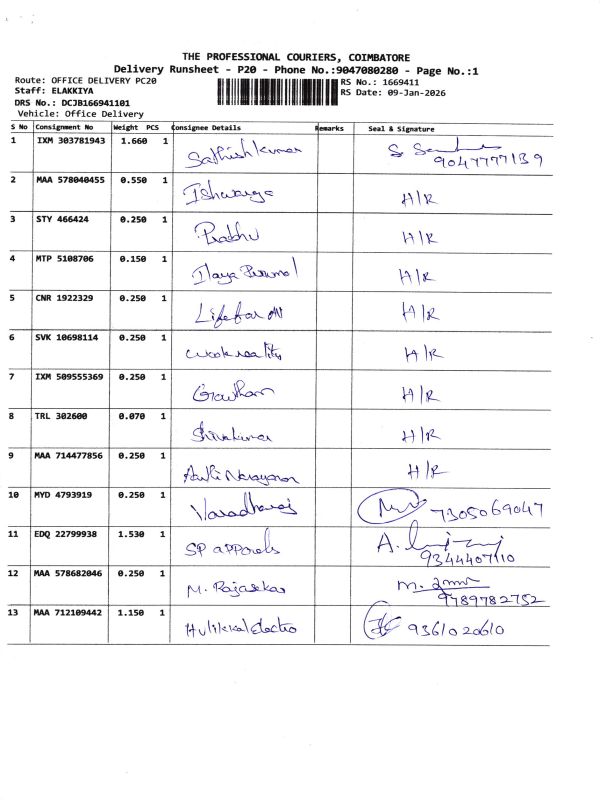 THE PROFESSIONAL COURIERS, COIMBATORE
Delivery Runsheet - P20 - Phone No.:9047080280 - Page No.:1
Route: OFFICE DELIVERY PC20 RS No.: 1669411
Staff: ELAKKIYA RS Date: 09-Jan-2026
DRS No.: DCJB166941101
Vehicle: Office Delivery
S No Consignment No Weight PCS Consignee Details Remarks Seal & Signature
1 IXM 303781943 1.660 1 Sathish kumar
9047777139
2 MAA 578040455 0.550 1 Ishwarya H/R
3 STY 466424 0.250 1 Prabhu H/R
4 MTP 5108706 0.150 1 Ilaya Perumal H/R
5 CNR 1922329 0.250 1 H/R
6 SVK 10698114 0.250 1 H/R
7 IXM 509555369 0.250 1 Gowtham H/R
8 TRL 302600 0.070 1 Shivakumar H/R
9 MAA 714477856 0.250 1 Narayanan H/R
10 MYD 4793919 0.250 1 Varadharaj 7305069047
11 EDQ 22799938 1.530 1 SP apparels A.
9344407110
12 MAA 578682046 0.250 1 M. Rajasekar
9789782752
13 MAA 712109442 1.150 1 Hulikkal Electro 9361020610